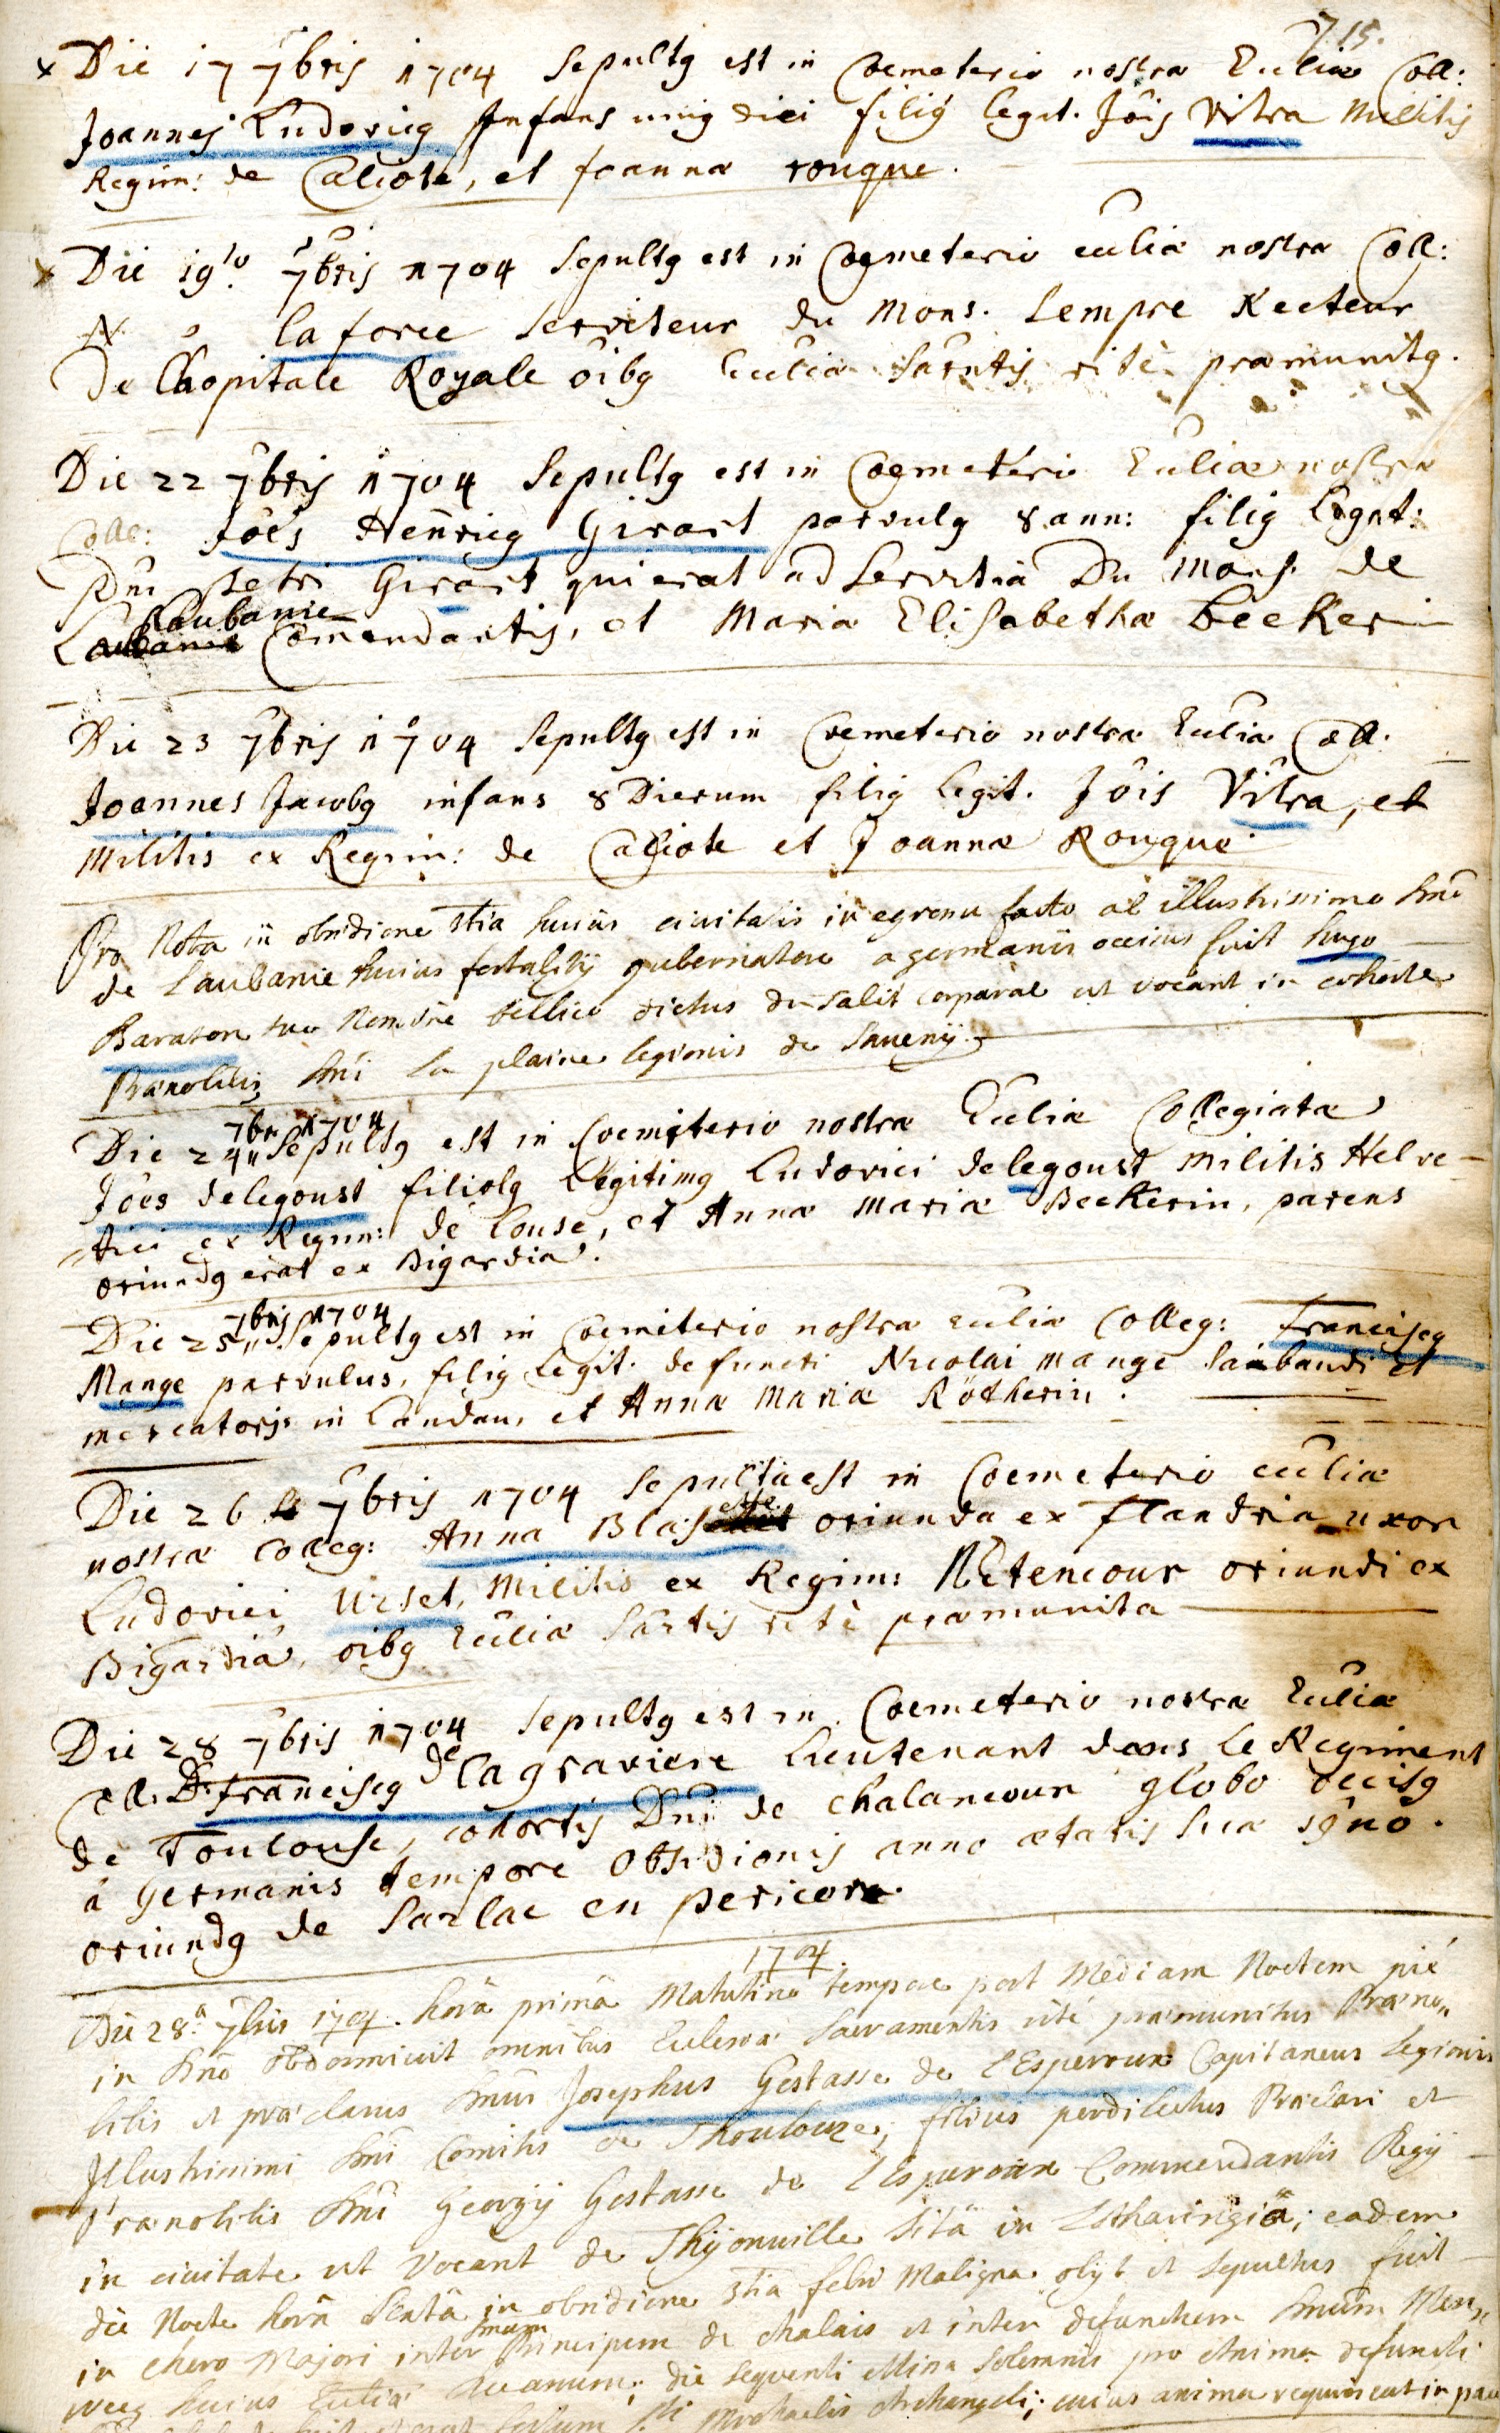 715.
x Die 17 7bris 1704 Sepultg est in Coemeterio nostræ Eccliæ Coll:
Joannes Ludovicg Infans unig diei filig legit. Jois Vitra Militis
Regim: de Caliote, et Joannæ rouque.
x Die 19 7bris 1704 Sepultg est in Coemeterio eccliæ nostræ Coll:
N. la force Serviteur du Mons. Sempre Recteur
De lhopitale Royale oibg Eccliæ Sacrtis ritè præmunitg.
Die 22 7bris 1704 Sepultg est in Coemeterio Eccliæ nostræ
Colle: Joes Henricg Girart parvulg 8 ann: filig legit:
Dni petri Girart qui erat ad Servitia Du Mons. de
Laubanie
Comendantis, et Maria Elisabetha Beckerin
Die 23 7bris 1704 Sepultg est in Coemeterio nostræ Eccliæ Coll.
Joannes Jacobg infans 8 Dierum filig legit. Jois Vitra, et
Militis ex Regim: de Caliote et Joannæ Rouque.
Pro Nota in obsidione 3tia huius civitatis in egressu facto ab illustrissimo Dno
de Laubanie huius fortalitij gubernatore a germanis occisus fuit hugo
Baraton suo Nomine bellico dictus du Salit Corporal ut vocant in cohorte
Prænobilis Dni la plaine legionis de Saueny.
7bris 1704
Die 24 Sepultg est in Coemiterio nostræ Eccliæ Collegiatæ
Joes delegoust filiolg Legitimg Ludovici delegoust Militis Helve-
tici ex Regim: de Couse, et Annæ Mariæ Beckerin, parens
oriundg erat ex Bigardia.
7bris 1704
Die 25 Sepultg est in Coemiterio nostræ eccliæ Colleg: Franciscg
Mange parvulus, filig Legit. defuncti Nicolai mange Saibaudi et
mercatoris in Landau, et Annæ Mariæ Rötherin.
Die 26 7bris 1704 Sepulta est in Coemeterio eccliæ
nostræ Colleg: Anna Blaisette oriunda ex flandria uxor
Ludovici Urset, Militis ex Regim: Netencour oriundi ex
Bigardia, oibg Eccliæ Sacrtis ritè præmunita
Die 28 7bris 1704 Sepultg est in Coemeterio nostræ Eccliæ
Coll. D. Franciscg de la graviere Lieutenant dans Le Regiment
de Toulouse, cohortis Dni de Chalancour globo occisg
à Germanis tempore Obsidionis anno ætatis suæ 19no.
oriundg de Sarlac en pericore.
1704.
Die 28a 7bris 1704. horâ primâ Matutino tempore post Mediam Noctem piè
in Dno obdormivit omnibus Ecclesiæ Sacramentis ritè præmunitus Præno„
bilis et præclarus Dnus Josephus Gestasse de l'Esperoux Capitaneus Legionis
Illustrissimi Dni Comitis de Thoulouze, filius perdilectus Præclari et
Prænobilis Dni Georgij Gestasse de l'Esperoux Commendantis Regij
in civitate ut Vocant de Thijonuille Sitâ in Lotharingiâ; eadem
die Nocte horâ Sextâ in obsidione 3tia febri Maligna obijt et Sepultus fuit
Dnum
in choro Majori inter Principem de chalais et inter defunctum Dnum
huius Eccliæ Decanum; die Sequenti Missa Solemnis pro Anima defuncti
festum Sti Michaelis Archangeli; cuius anima requiescat in pace